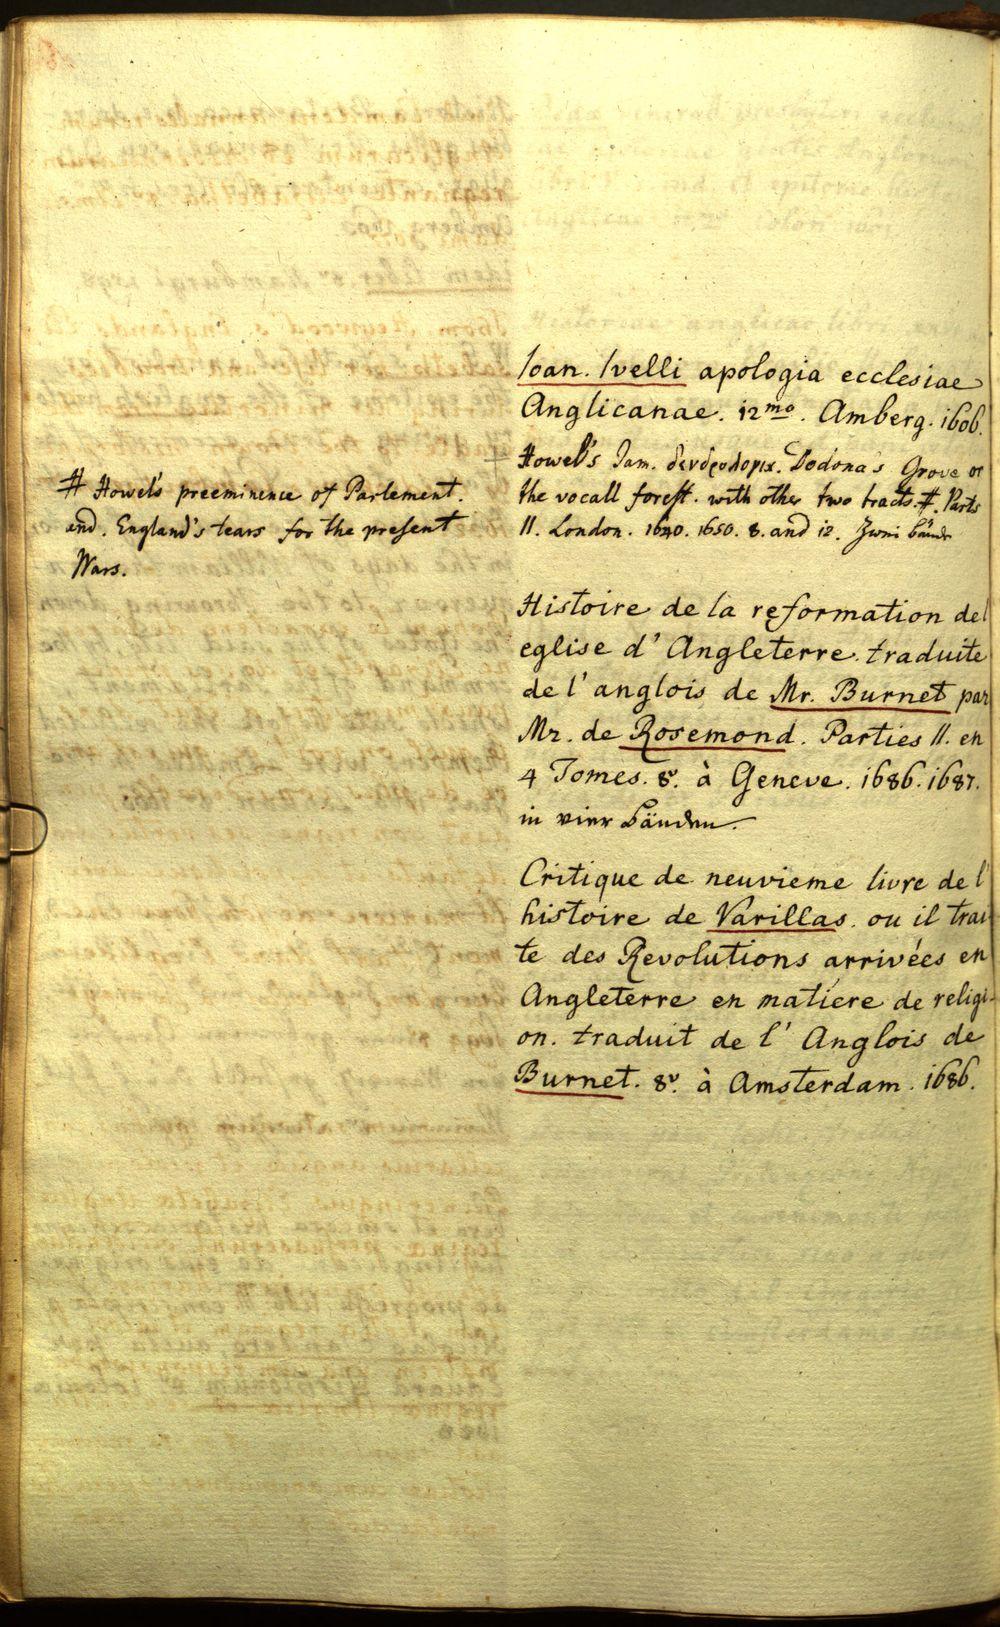 Ioan. Ivelli apologia ecclesiae
Anglicanae. 12mo. Amberg. 1606.
Howel's Jam. δενδρολογια. Dodona's Grove or
the vocall forest. with other two tracts. #. Parts
II. London. 1640. 1650. 8. and 12. Zwei bände
# Howel's preeminence of Parlement.
and. England's tears for the present
Wars.
Histoire de la reformation de l
eglise d' Angleterre. traduite
de l'anglois de Mr. Burnet par
Mr. de Rosemond. Parties II. en
4 Tomes. 8º. à Geneve. 1686. 1687.
in vier bänden.
Critique de neuvieme livre de l'
histoire de Varillas. ou il trai-
te des Revolutions arrivées en
Angleterre en matiere de religi-
on. traduit de l' Anglois de
Burnet. 8º. à Amsterdam. 1686.